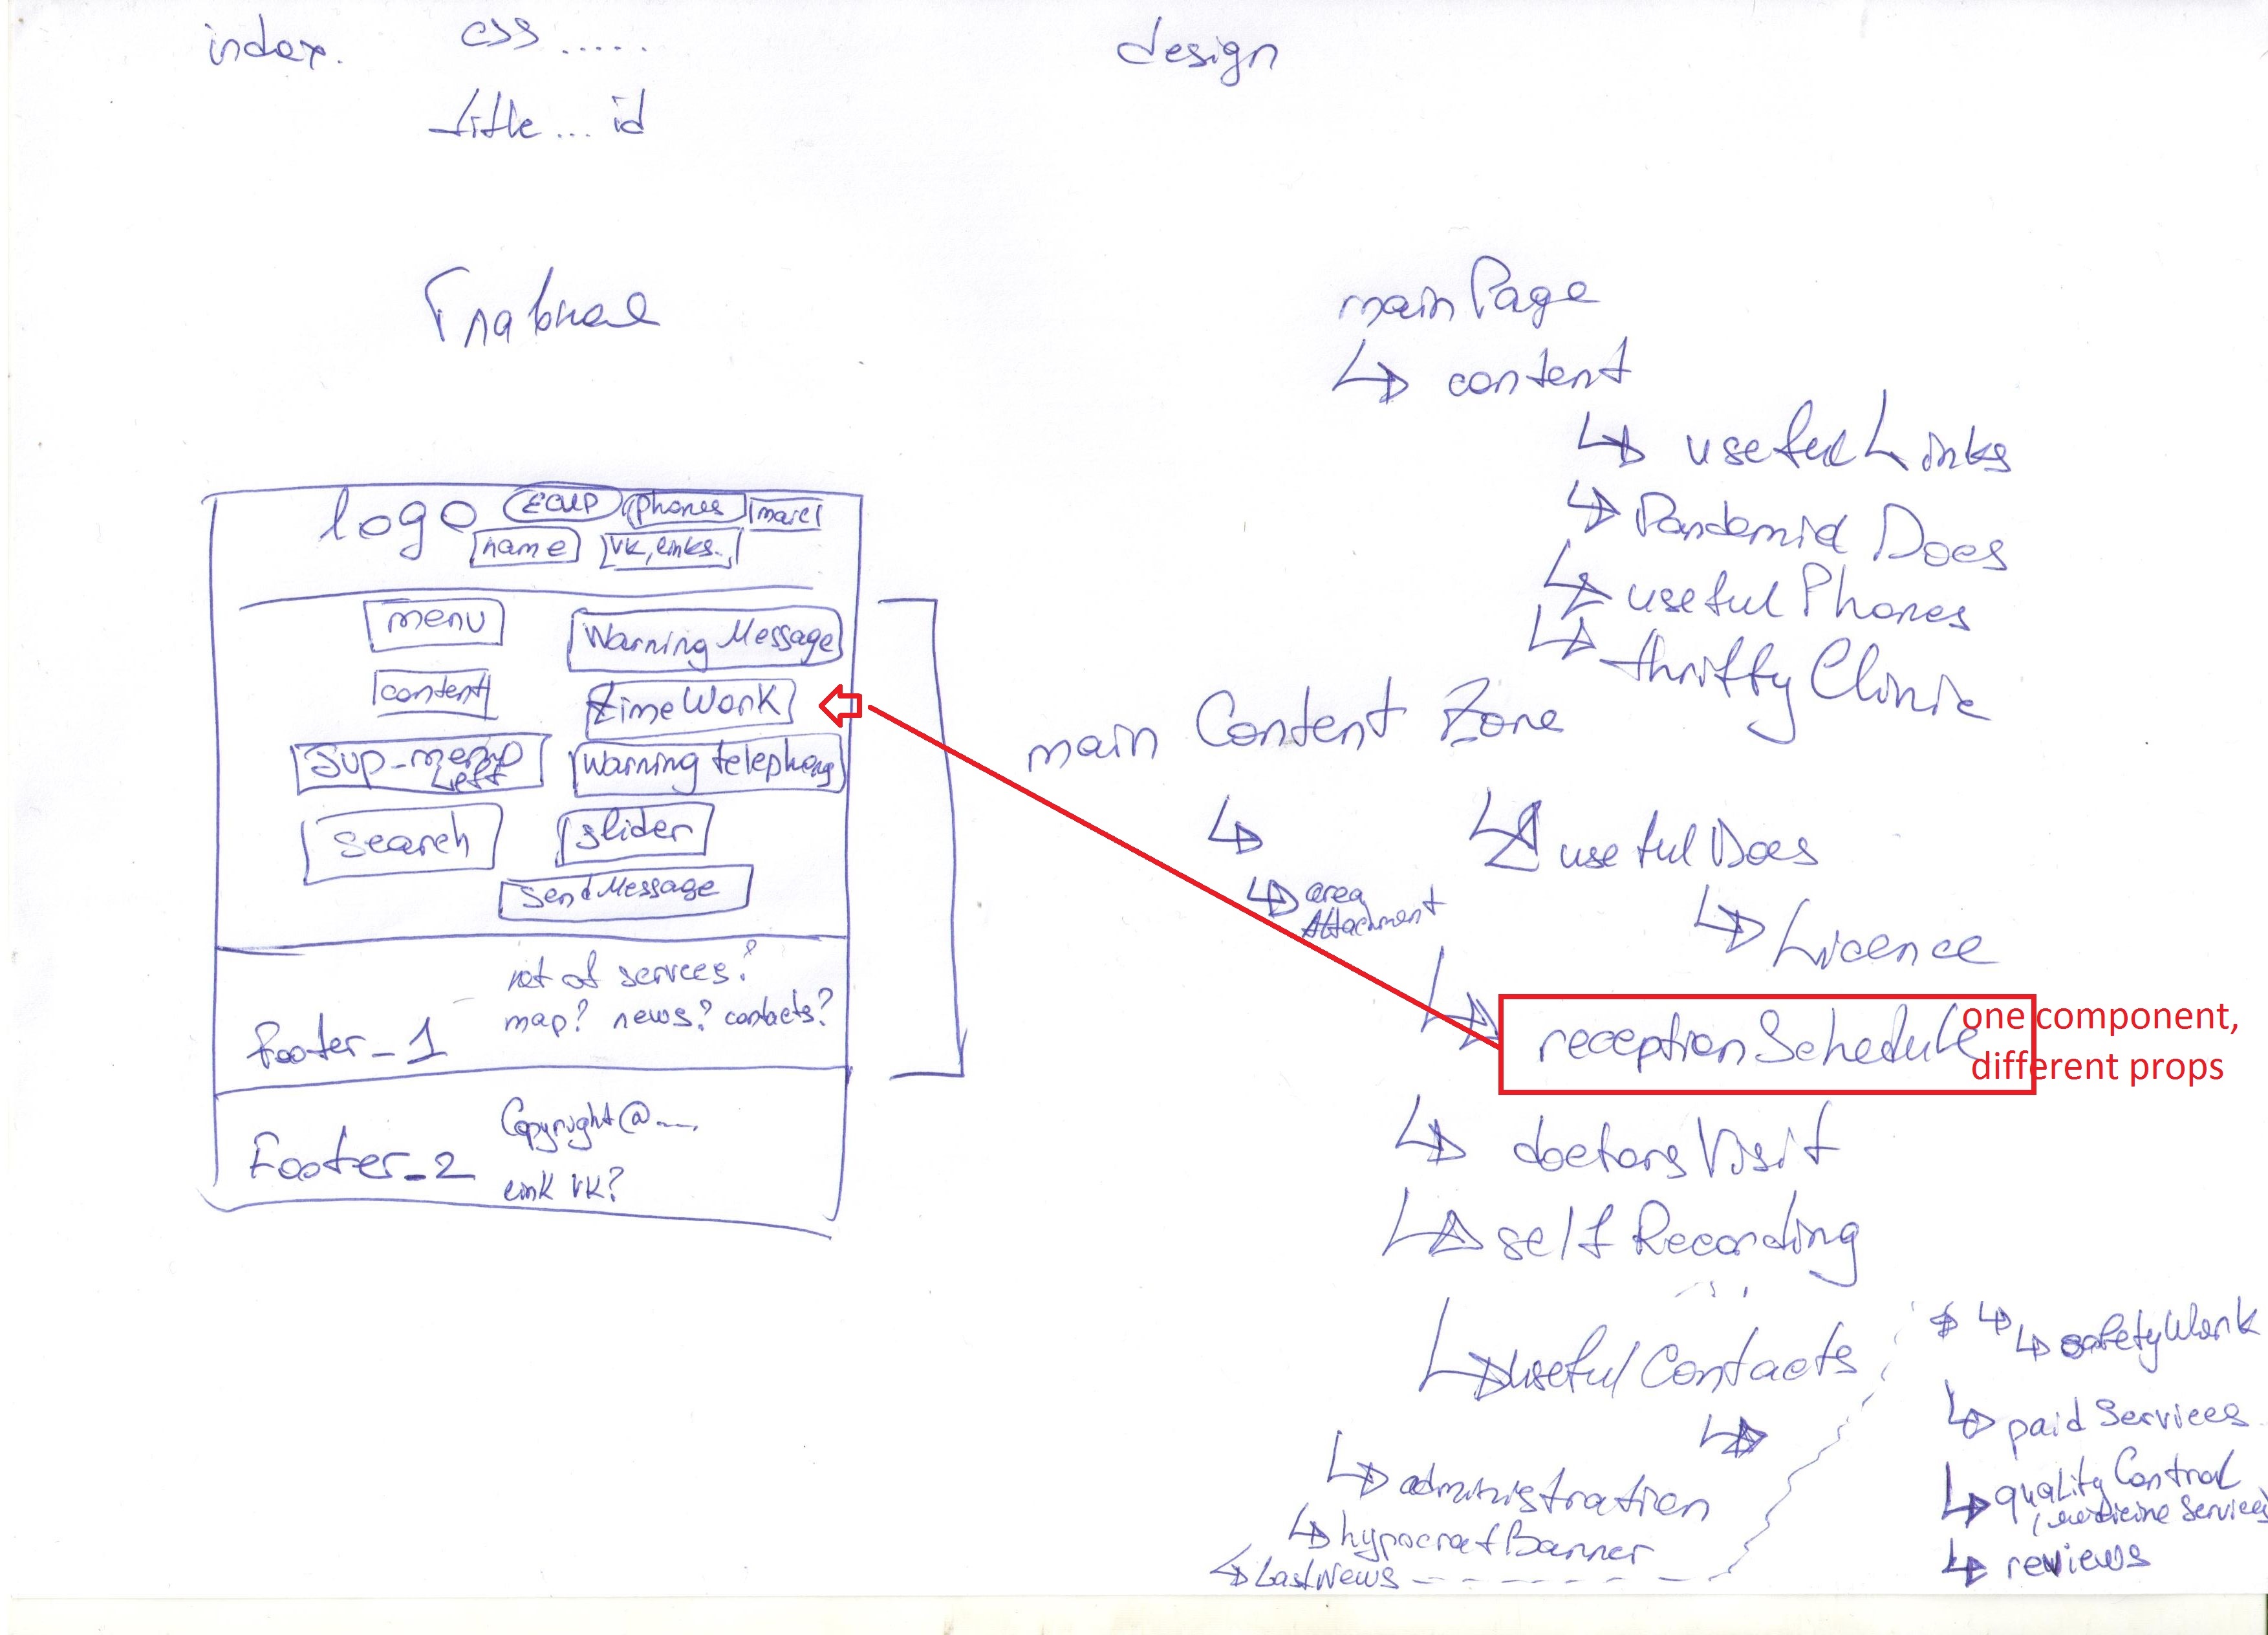 index.
css .....
title ... id
design
Главная
logo
phones
name
VK, links..
menu
Warning Message
content
timeWork
Sup-menu
Left
Warning telephons
Search
slider
Send Message
Footer_1
not of servces?
map? news? contacts?
Footer_2
Copyright@....
link VK?
mainPage
content
usefulLinks
Pandemid Docs
usefulPhones
thriftyClinic
main Content Zone
area
Attachment
usefulDocs
Licence
receptionSchedule
one component,
different props
doctorsVisit
selfRecording
usefulContacts
administration
hypocratBanner
LastNews
safetyWork
paid Services
qualityControl
(medicine Services)
reviews